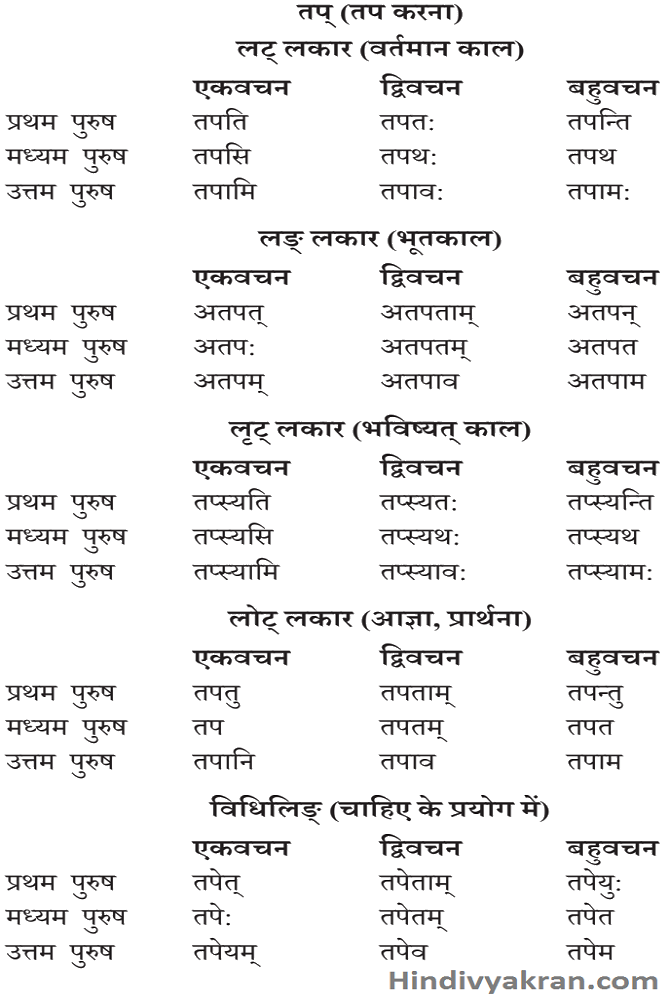 तप् (तप करना)
लट् लकार (वर्तमान काल)
एकवचन द्विवचन बहुवचन
प्रथम पुरुष तपति तपत: तपन्ति
मध्यम पुरुष तपसि तपथ: तपथ
उत्तम पुरुष तपामि तपाव: तपाम:
लङ् लकार (भूतकाल)
एकवचन द्विवचन बहुवचन
प्रथम पुरुष अतपत् अतपताम् अतपन्
मध्यम पुरुष अतप: अतपतम् अतपत
उत्तम पुरुष अतपम् अतपाव अतपाम
लृट् लकार (भविष्यत् काल)
एकवचन द्विवचन बहुवचन
प्रथम पुरुष तप्स्यति तप्स्यत: तप्स्यन्ति
मध्यम पुरुष तप्स्यसि तप्स्यथ: तप्स्यथ
उत्तम पुरुष तप्स्यामि तप्स्याव: तप्स्याम:
लोट् लकार (आज्ञा, प्रार्थना)
एकवचन द्विवचन बहुवचन
प्रथम पुरुष तपतु तपताम् तपन्तु
मध्यम पुरुष तप तपतम् तपत
उत्तम पुरुष तपानि तपाव तपाम
विधिलिङ् (चाहिए के प्रयोग में)
एकवचन द्विवचन बहुवचन
प्रथम पुरुष तपेत् तपेताम् तपेयु:
मध्यम पुरुष तपे: तपेतम् तपेत
उत्तम पुरुष तपेयम् तपेव तपेम
Hindivyakran.com